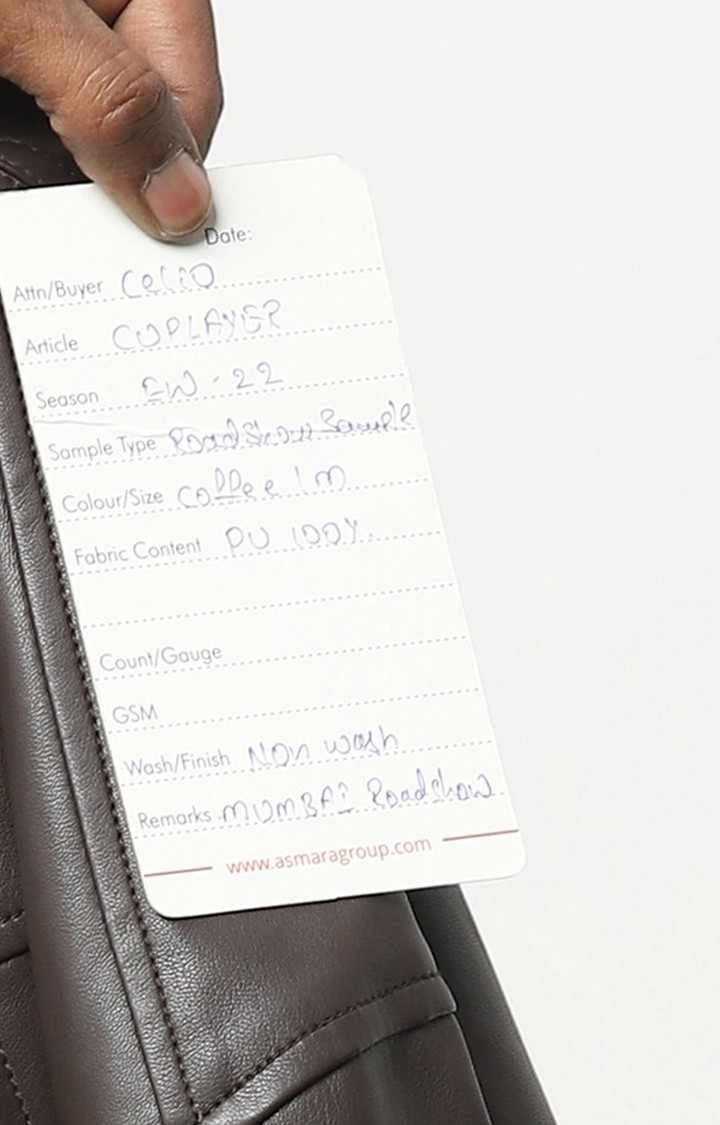 Date:
Attn/Buyer Celio
Article CUPLAYER
Season EW-22
Sample Type Road Show Sample
Colour/Size Coffee / m
Fabric Content PU 100%.
Count/Gauge
GSM
Wash/Finish Non wash
Remarks MUMBAI Roadshow
www.asmaragroup.com